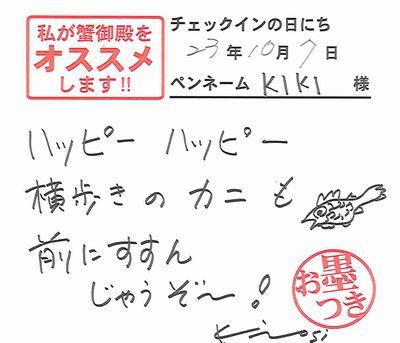 私が蟹御殿を
オススメ
します!!
チェックインの日にち
23年10月7日
ペンネーム KIKI 様
ハッピー ハッピー
横歩きの カニも
前にすすん
じゃうぞ〜!
お墨
つき